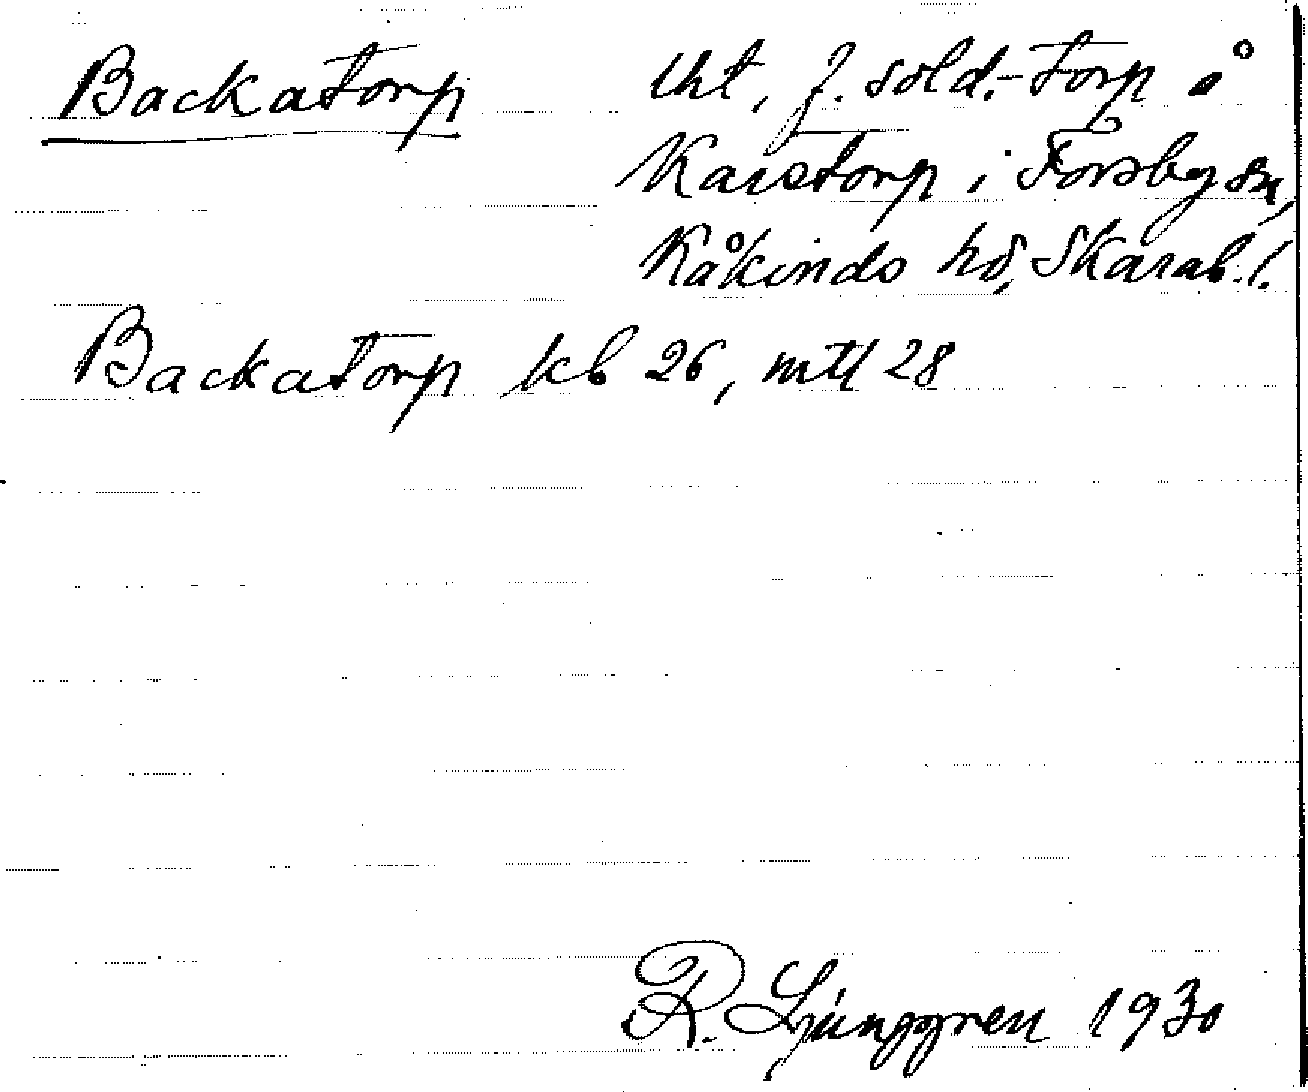 Backatorp lht, f. sold.-torp å
Karstorp i Forsby sn,
Kåkinds hd, Skarab. l.
Backatorp kb 26, mtl 28
R. Ljunggren 1930